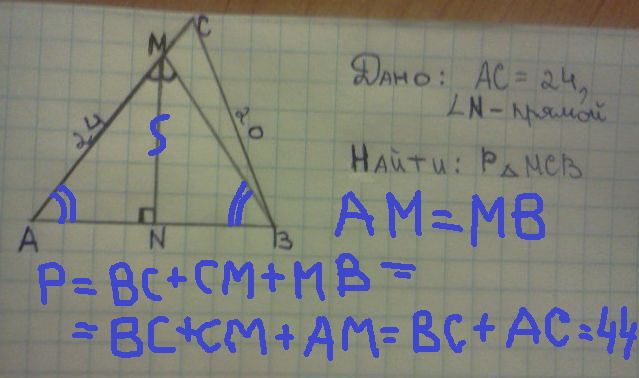 C
M
Дано: AC = 24,
∠N - прямой
24
20
S
Найти: P△MCB
A
N
B
AM=MB
P=BC+CM+MB=
=BC+CM+AM=BC+AC=44